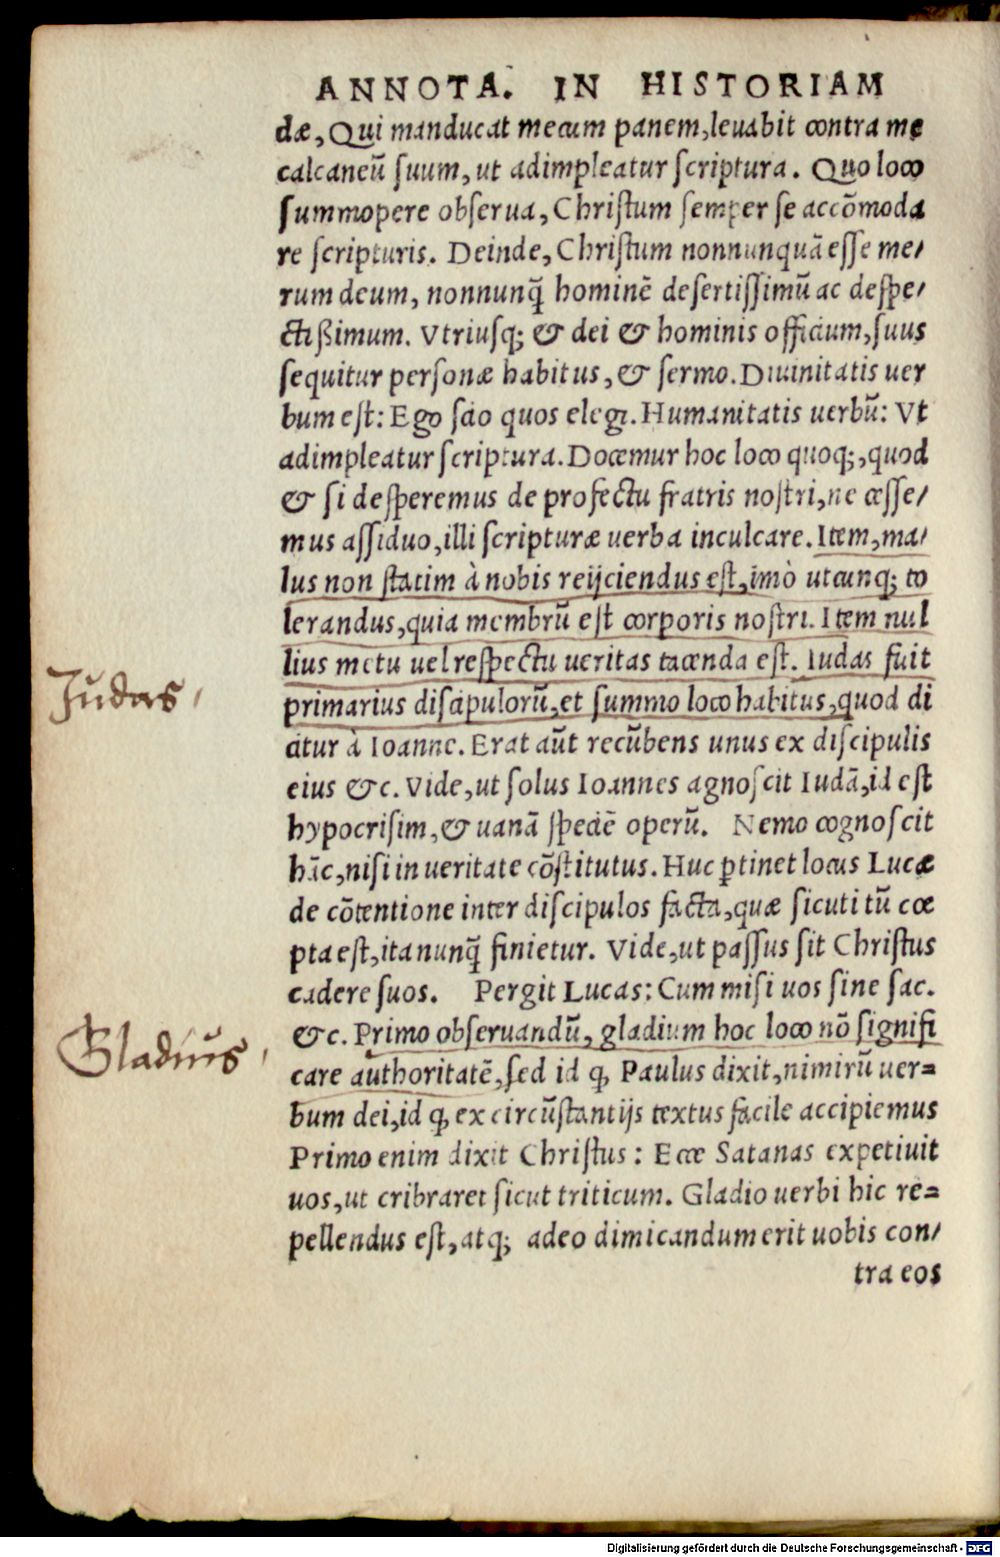 ANNOTA. IN HISTORIAM
dæ, Qui manducat mecum panem, leuabit contra me
calcaneū ſuum, ut adimpleatur ſcriptura. Quo loco
ſummopere obſerua, Chriſtum ſemper ſe accōmoda
re ſcripturis. Deinde, Chriſtum nonnunquā eſſe me/
rum deum, nonnunq̄ hominē deſertiſſimū ac deſpe/
ctißimum. Vtriuſq; & dei & hominis officium, ſuus
ſequitur perſonæ habitus, & ſermo. Diuinitatis uer
bum eſt: Ego ſcio quos elegi. Humanitatis uerbū: Vt
adimpleatur ſcriptura. Docemur hoc loco quoq;, quod
& ſi deſperemus de profectu fratris noſtri, ne ceſſe/
mus aſſiduo, illi ſcripturæ uerba inculcare. Item, ma/
lus non ſtatim à nobis reijciendus eſt, imò utcunq; to
lerandus, quia membrū eſt corporis noſtri. Item nul
lius metu uel reſpectu ueritas tacenda eſt. Iudas fuit
Judas,
primarius diſcipulorū, et ſummo loco habitus, quod di
citur à Ioanne. Erat aūt recūbens unus ex diſcipulis
eius &c. Vide, ut ſolus Ioannes agnoſcit Iudā, id eſt
hypocriſim, & uanā ſpeciē operū. Nemo cognoſcit
hāc, niſi in ueritate cōſtitutus. Huc ꝑtinet locus Lucæ
de cōtentione inter diſcipulos facta, quæ ſicuti tū cœ
pta eſt, ita nunq̄ finietur. Vide, ut paſſus ſit Chriſtus
cadere ſuos. Pergit Lucas: Cum miſi uos ſine ſac.
&c. Primo obſeruandū, gladium hoc loco nō ſignifi
Gladius,
care authoritatē, ſed id ꝙ Paulus dixit, nimirū uer=
bum dei, id ꝙ ex circūſtantijs textus facile accipiemus
Primo enim dixit Chriſtus: Ecce Satanas expetiuit
uos, ut cribraret ſicut triticum. Gladio uerbi hic re=
pellendus eſt, atq; adeo dimicandum erit uobis con/
tra eos
Digitalisierung gefördert durch die Deutsche Forschungsgemeinschaft - DFG